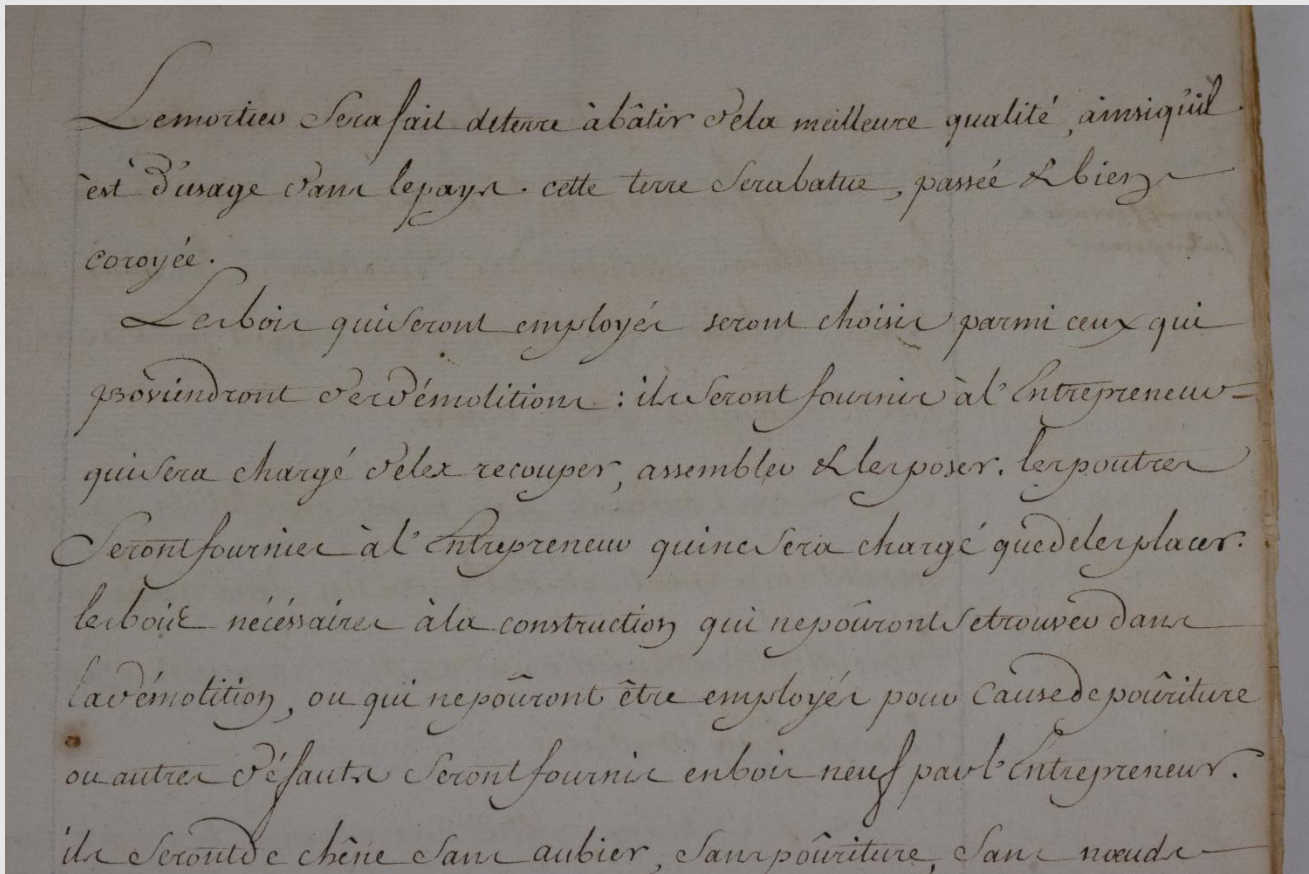 Le mortier sera fait de terre à bâtir de la meilleure qualité, ainsi qu'il
est d'usage dans le pays. cette terre sera batue, passée & bien
coroyée.
Les bois qui seront employés seront choisis parmi ceux qui
proviendront des démolitions : ils seront fournis à l'Entrepreneur
qui sera chargé de les recouper, assembler & les poser. les poutres
seront fournies à l'Entrepreneur qui ne sera chargé que de les placer.
les bois nécéssaires à la construction qui ne poûront se trouver dans
la démolition, ou qui ne poûront être employés pour cause de poûriture
ou autres défauts seront fournis en bois neuf par l'Entrepreneur.
ils seront de chêne sans aubier, sans poûriture, sans nœuds